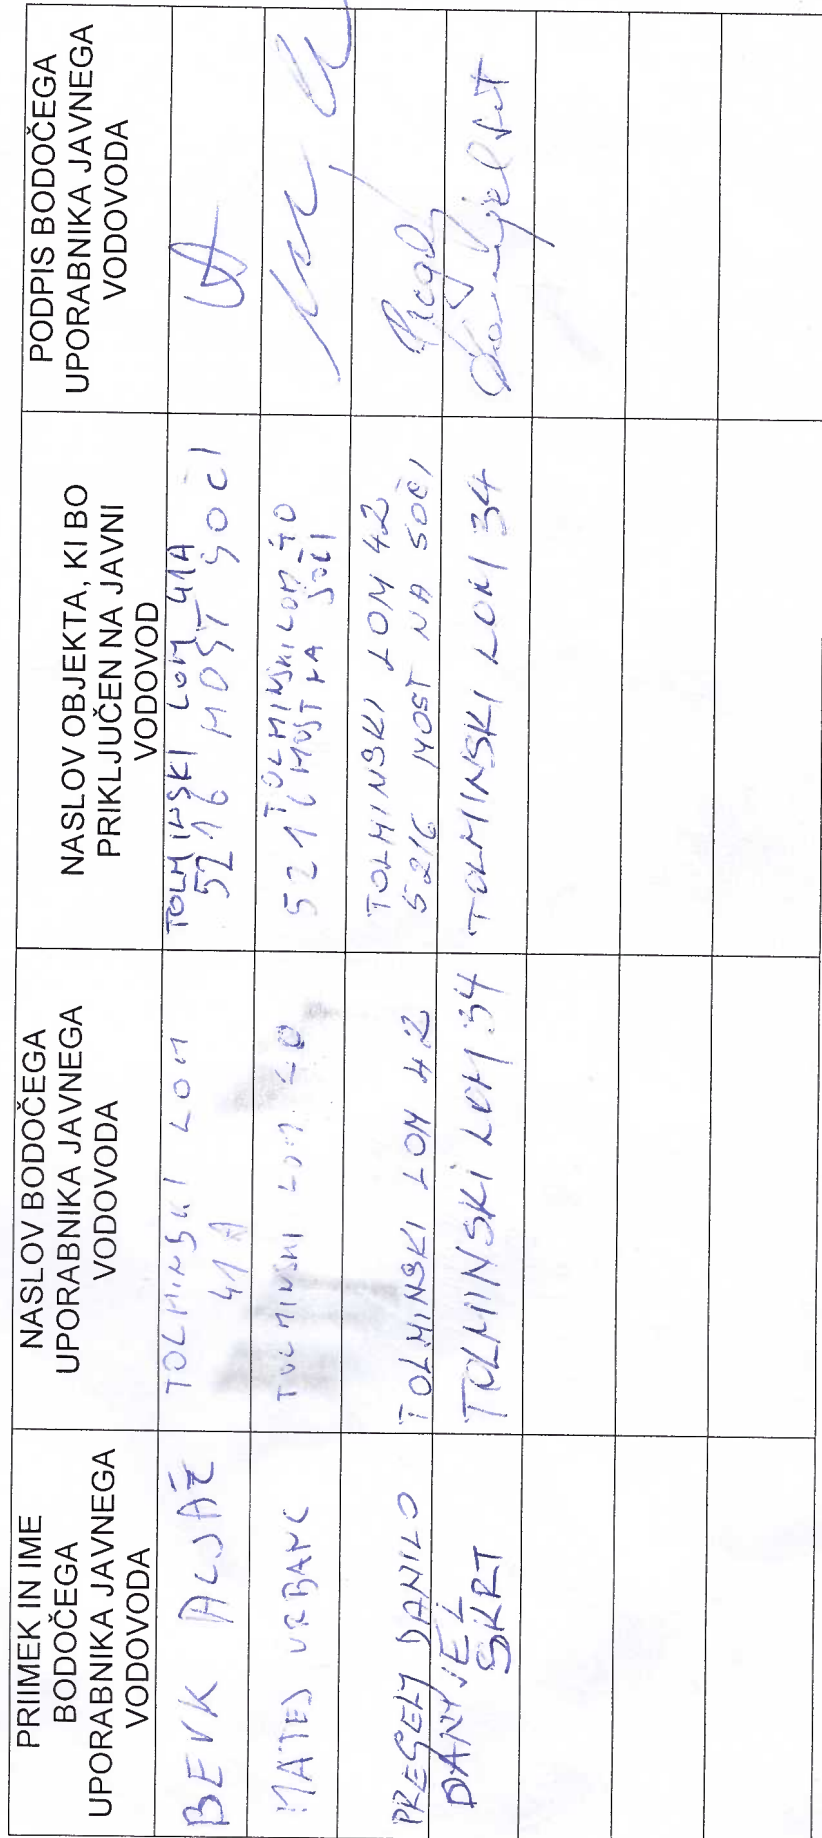 PRIIMEK IN IME
BODOČEGA
UPORABNIKA JAVNEGA
VODOVODA
NASLOV BODOČEGA
UPORABNIKA JAVNEGA
VODOVODA
NASLOV OBJEKTA, KI BO
PRIKLJUČEN NA JAVNI
VODOVOD
PODPIS BODOČEGA
UPORABNIKA JAVNEGA
VODOVODA
BEVK ALJAŽ
TOLMINSKI LOM
41A
TOLMINSKI LOM 41A
5216 MOST SOČI
MATEJ URBANC
TOLMINSKI LOM
TOLMINSKI LOM 40
5216 MOST NA SOČI
PREGELJ DANILO
TOLMINSKI LOM 42
TOLMINSKI LOM 42
5216 MOST NA SOČI
Pregelj
DANIJEL
SKRT
TOLMINSKI LOM 34
TOLMINSKI LOM 34
Danijel Skrt